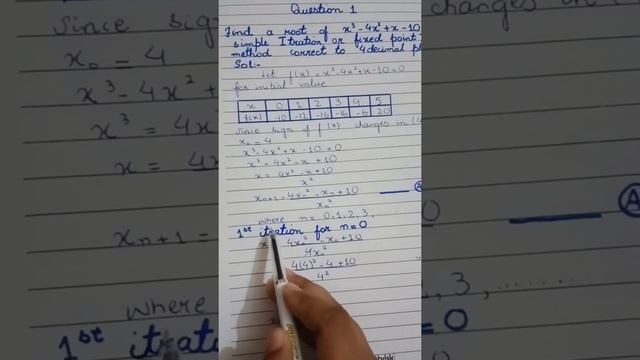 Question 1
Find a root of x³-4x²+x-10
simple Itration or fixed point
method correct to 4decimal pl
Sol:-
let f(x) = x³-4x²+x-10=0
for initial value
x 0 1 2 3 4 5
f(x) -10 -12 -16 -16 -6 20
Since sign of f(x) changes in (4
x₀ = 4
x³-4x²+x-10=0
x³ = 4x²-x+10
x = 4x²-x+10
x²
xₙ₊₁ = 4xₙ²-xₙ+10
xₙ²
A
where n= 0,1,2,3, ......
1st itration for n=0
4x₀²-x₀+10
x₀²
4(4)²-4+10
4²